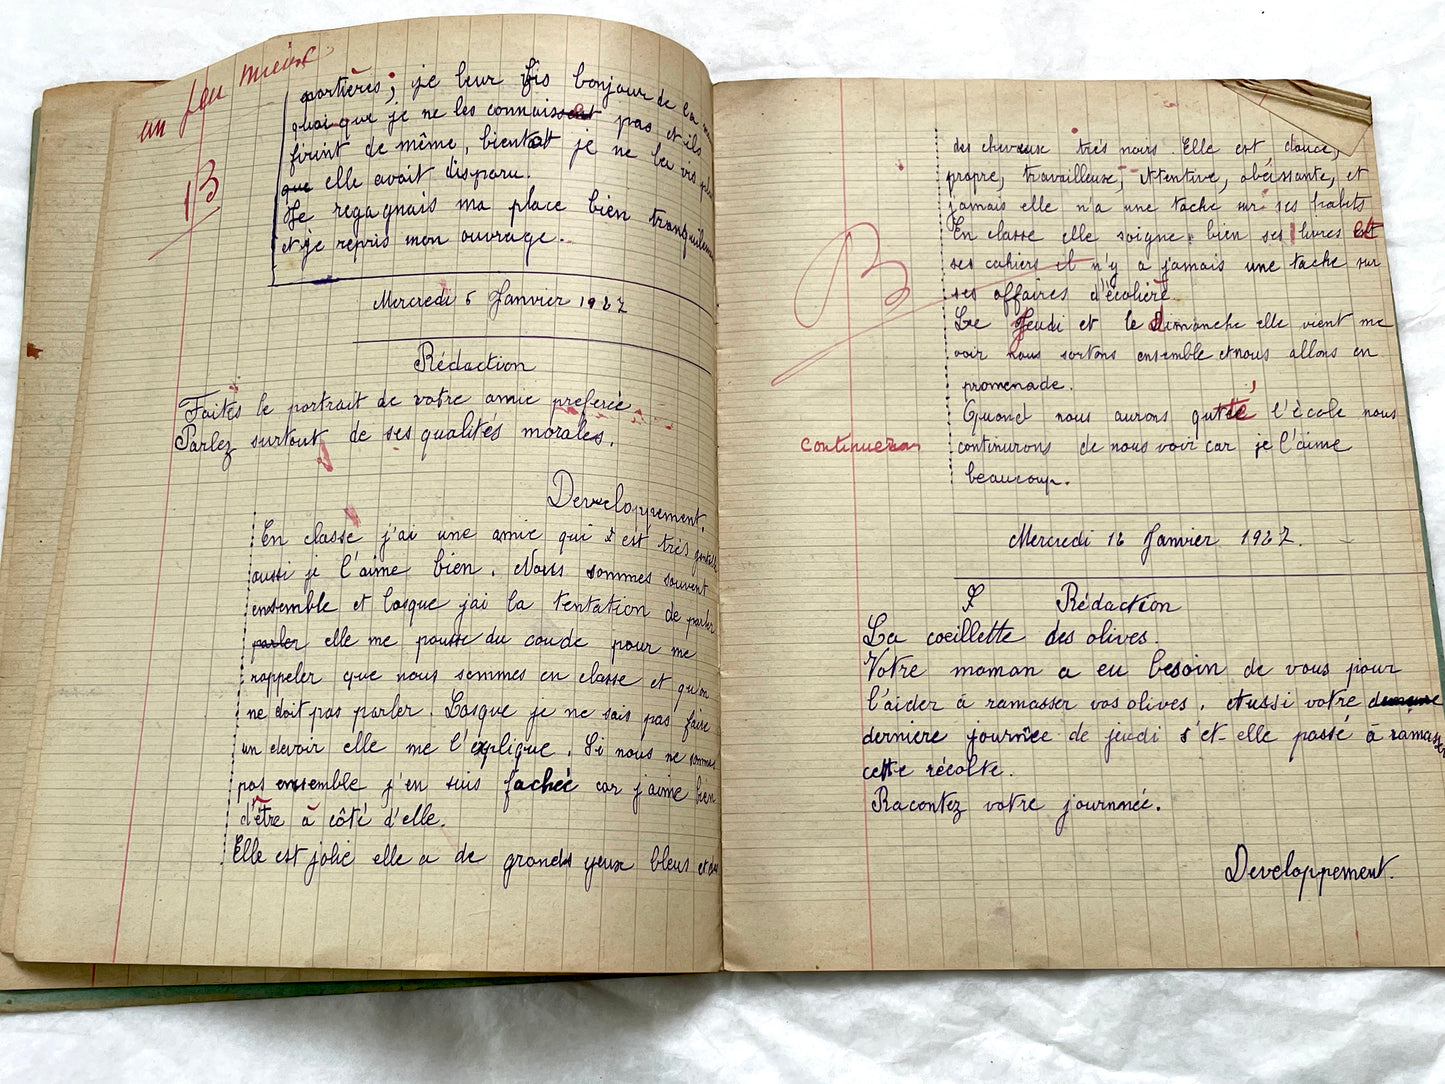 un peu mieux
13
portières; je leur fis bonjour de la
quoi que je ne les connaissent pas et ils
firint de même, bientôt je ne la vis
que elle avait disparu.
Je regagnais ma place bien tranquillement
et je repris mon ouvrage.
Mercredi 5 Janvier 1927
Rédaction
Faites le portrait de votre amie preferée
Parlez surtout de ses qualités morales.
Developpement.
En classe j'ai une amie qui est très gentille
aussi je l'aime bien. Nous sommes souvent
ensemble et losque jai la tentation de parler
parler elle me pousse du coude pour me
rappeler que nous sommes en classe et qu'on
ne doit pas parler. Losque je ne sais pas faire
un devoir elle me l'explique. Si nous ne sommes
pas ensemble j'en suis fachée car j'aime bien
d'être à côté d'elle.
Elle est jolie elle a de grands yeux bleus et
des cheveux très noirs. Elle est douce,
propre, travailleuse, Attentive, obéissante, et
jamais elle n'a une tache sur ses habits
En classe elle soigne bien ses livres et
ses cahiers il n'y a jamais une tache sur
ses affaires d'écolière.
Le Jeudi et le Dimanche elle vient me
voir nous sortons ensemble et nous allons en
promenade.
Quand nous aurons quitté l'école nous
continuerons
continurons de nous voir car je l'aime
beaucoup.
B
Mercredi 12 Janvier 1927.
Rédaction
La coeillette des olives.
Votre maman a eu besoin de vous pour
l'aider à ramasser vos olives. Aussi votre
dernière journèe de jeudi s'et-elle passé à ramasser
cette récolte.
Racontez votre journmée.
Developpement.